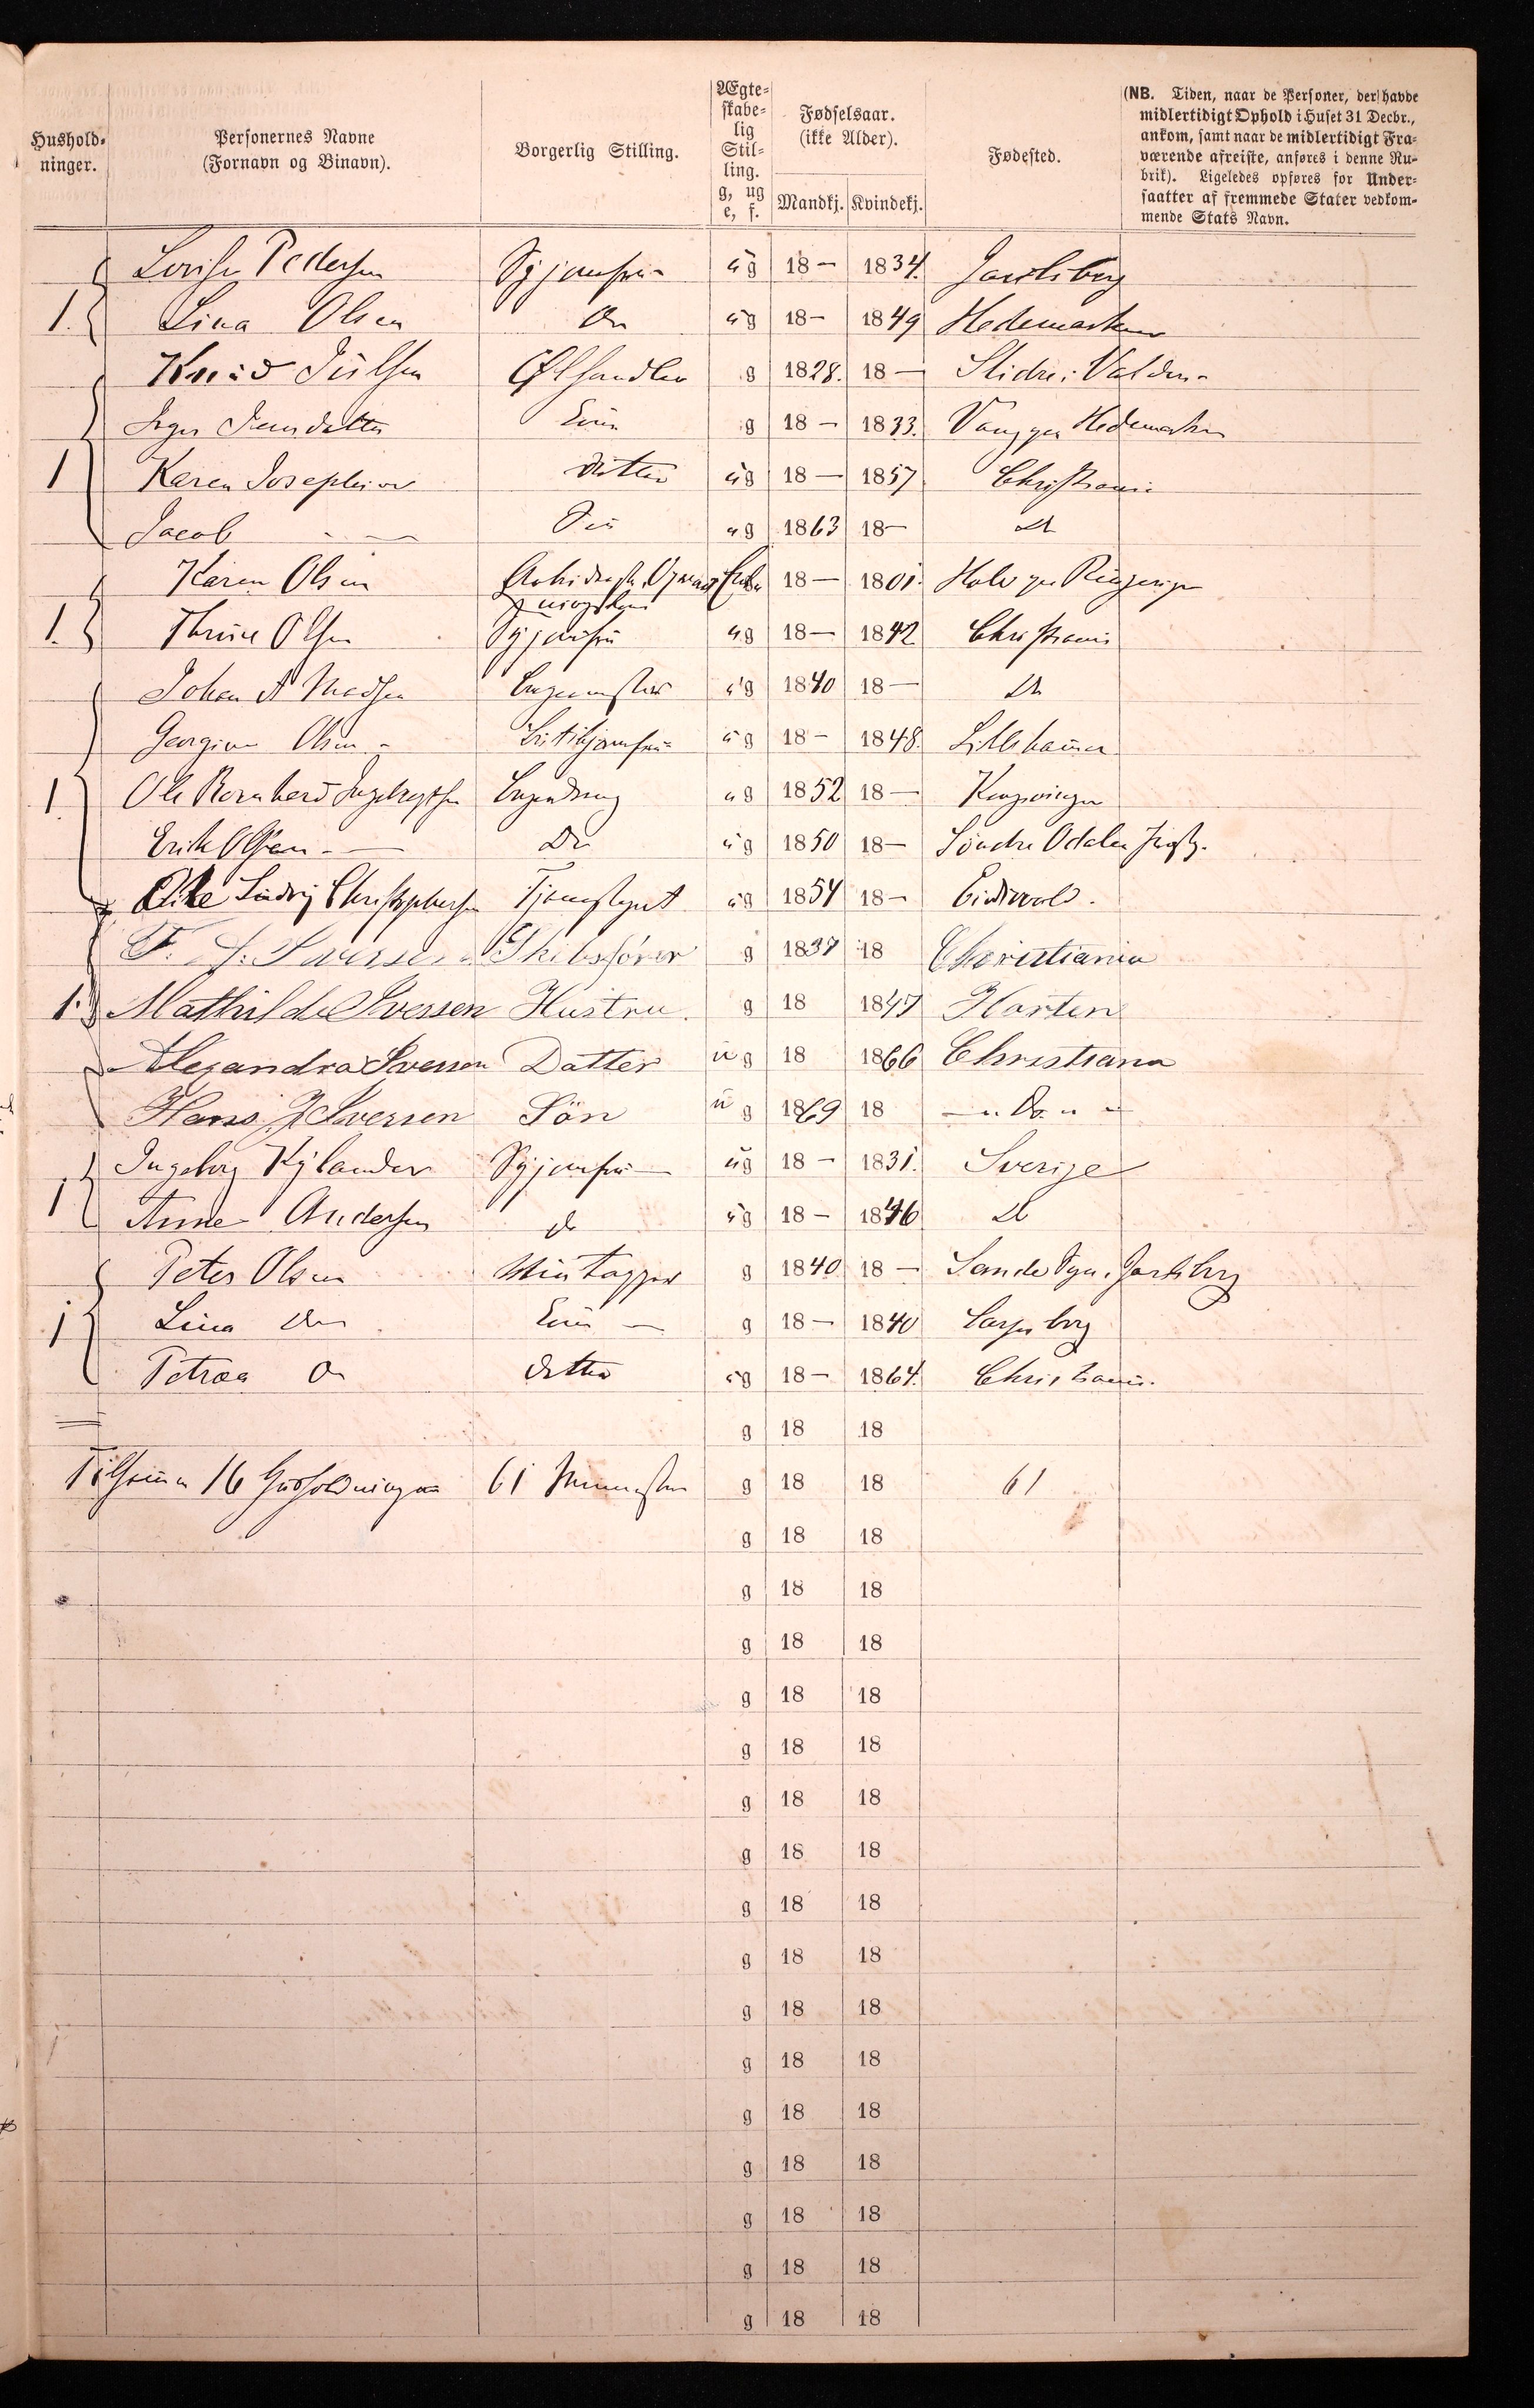 Hushold-
ninger.
Personernes Navne
(Fornavn og Binavn).
Borgerlig Stilling.
Ægte-
skabe-
lig
Stil-
ling.
g, ug
e, f.
Fødselsaar.
(ikke Alder).
Mandkj. Kvindekj.
Fødested.
(NB. Tiden, naar de Personer, der havde
midlertidigt Ophold i Huset 31 Decbr.,
ankom, samt naar de midlertidigt Fra-
værende afreiste, anføres i denne Ru-
brik). Ligeledes opføres for Under-
saatter af fremmede Stater vedkom-
mende Stats Navn.
Lovise Pedersen Syjomfru ug 18— 1834. Jarlsberg
1. Lina Olsen Do ug 18— 1849 Hedemarken
Knud Julsen Ølhandler g 1828. 18— Slidre i Valders
Jensdatter g 18— 1833. Vang Hedemarken
1 Karen Josephine Datter ug 18— 1857 Christiania
Jacob — ug 1863 18— Do
Karen Olsen Enke 18— 1801. Hole Ringerige
1. Thrine Olsen Syjomfru ug 18— 1842 Christiania
Johan A Madsen Bagermester ug 1840 18— Do
Georgine Olsen ug 18— 1848. Lillehammer
1 Ole Bernhard Ingebregtsen Bagerdreng ug 1852 18— Kongsvinger
Erik Olsen — Do ug 1850 18— Söndre Odalen
Ludvig Christophersen Tjenestgut ug 1854 18— Eidsvold.
F. Iversen Skibsförer g 1837 18 Christiania
1. Mathilde Iversen Hustru. g 18 1847 Horten
Alexandra Iversen Datter ug 18 1866 Christiana
Hans Iversen Sön ug 1869 18 —„ Do. „ —
Ingeborg Kylander Syjomfru — ug 18— 1831. Sverige
1 Anne Andersen do ug 18— 1846 Do
Peter Olsen Vintapper g 1840 18— Sande Jarlsberg
1 Lina Do — g 18— 1840 Sarpsborg
Petrea Do Datter ug 18— 1864. Christiania.
g 18 18
Tilsammen 16 Husholdninger 61 Mennesker g 18 18 61
g 18 18
g 18 18
g 18 18
g 18 18
g 18 18
g 18 18
g 18 18
g 18 18
g 18 18
g 18 18
g 18 18
g 18 18
g 18 18
g 18 18
g 18 18
g 18 18